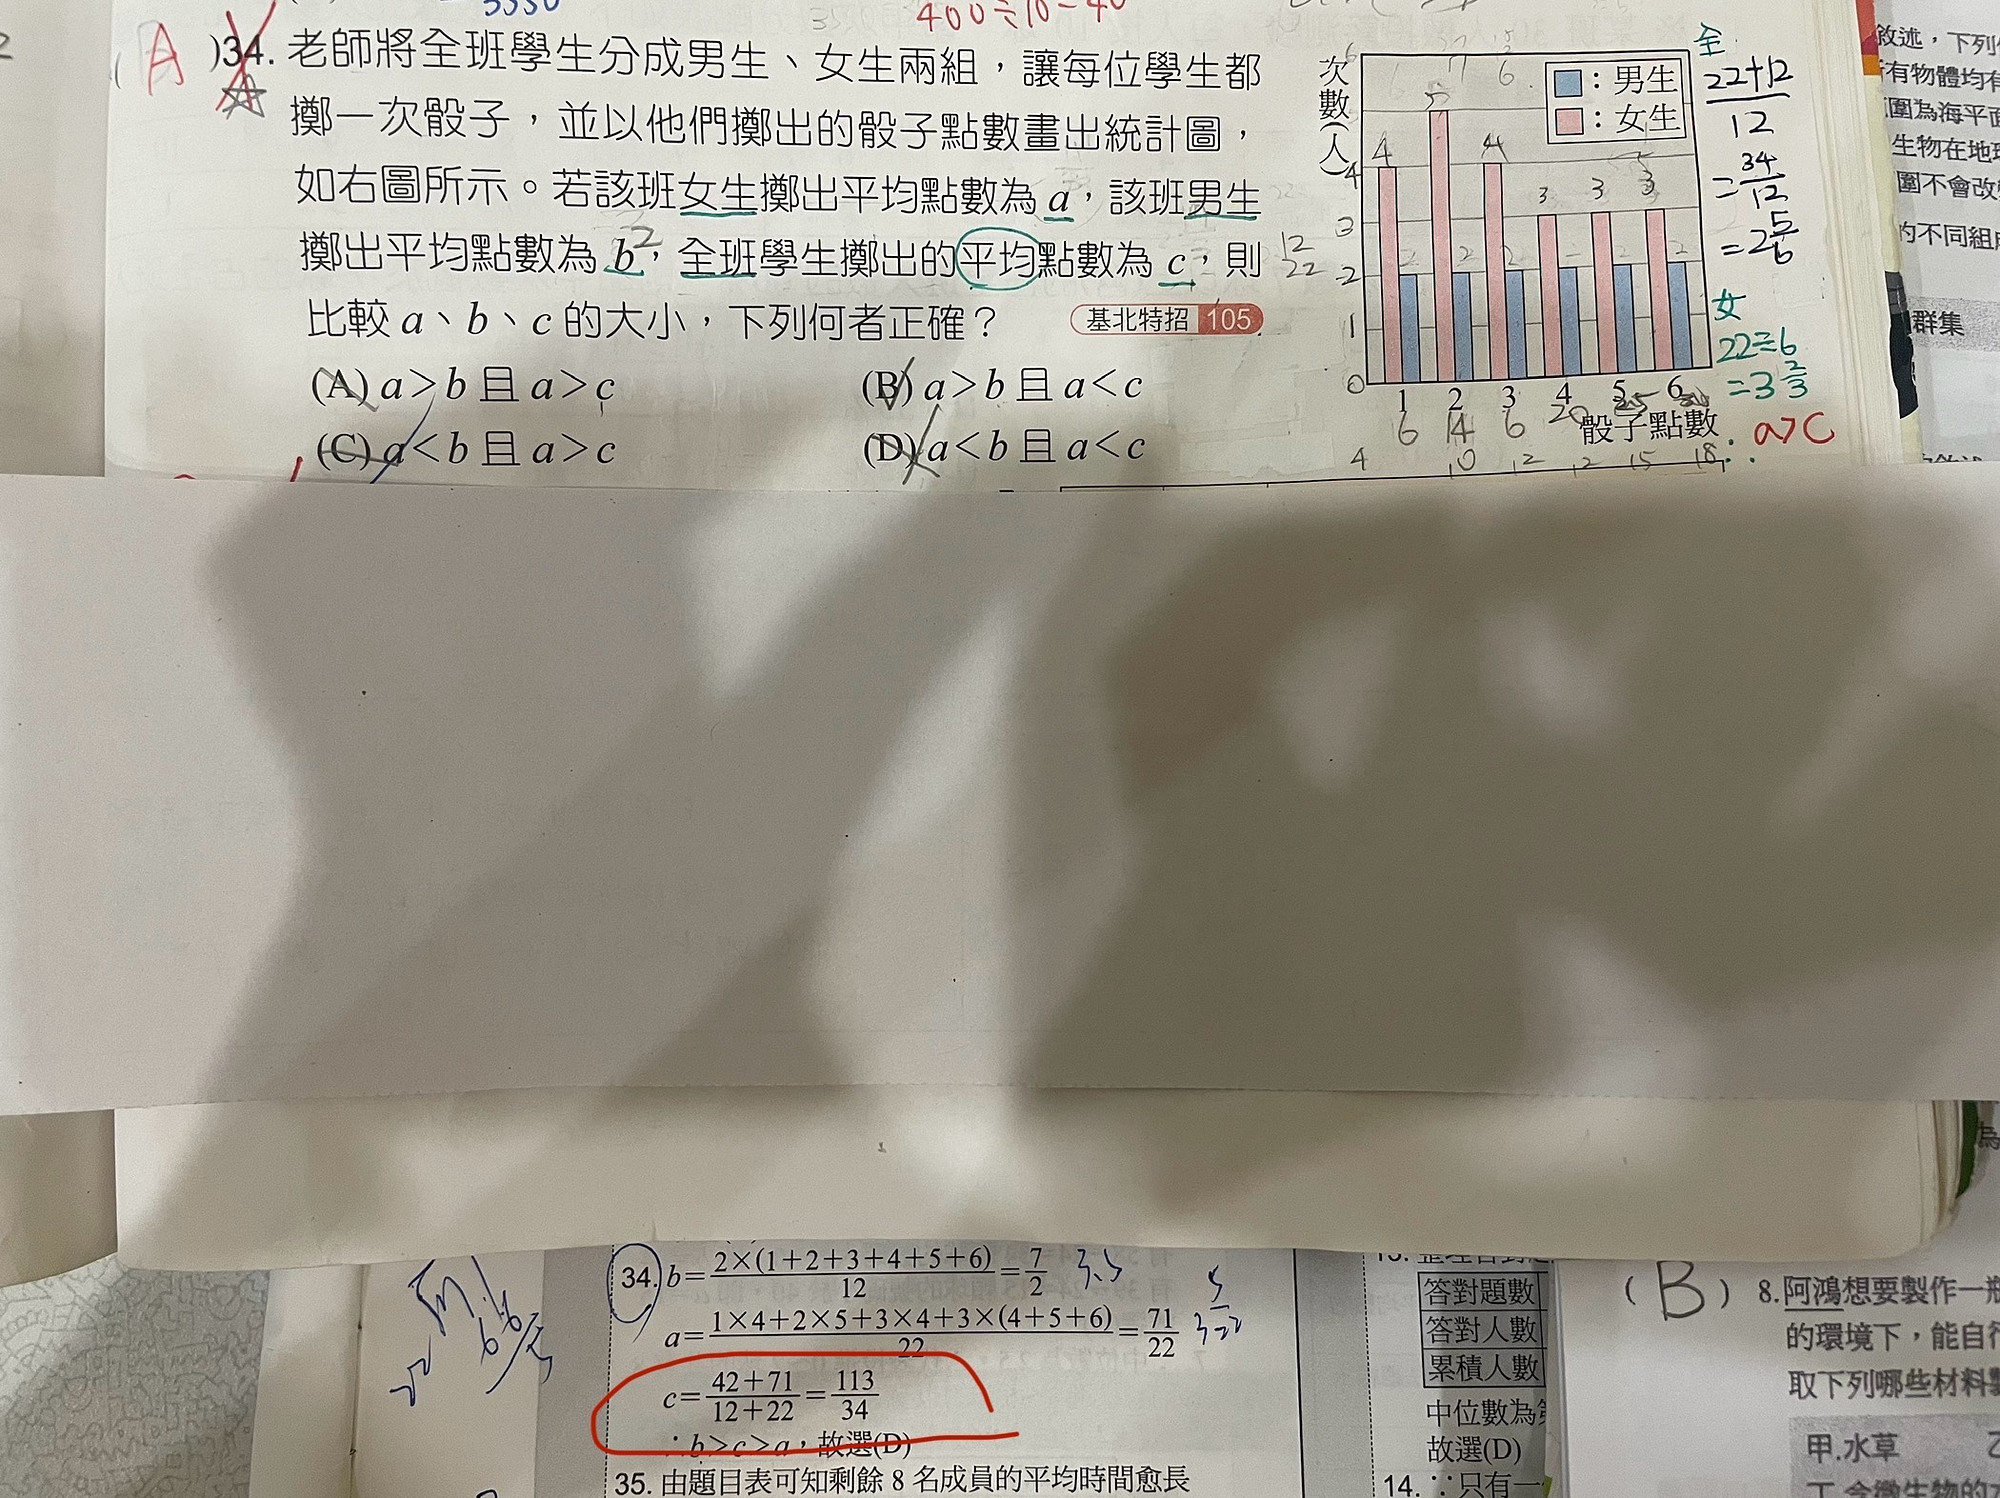 400÷10=40
(A)34. 老師將全班學生分成男生、女生兩組，讓每位學生都
擲一次骰子，並以他們擲出的骰子點數畫出統計圖，
如右圖所示。若該班女生擲出平均點數為 a，該班男生
擲出平均點數為 b，全班學生擲出的平均點數為 c，則
比較 a、b、c 的大小，下列何者正確？ 基北特招 105
(A) a>b 且 a>c (B) a>b 且 a<c
(C) a<b 且 a>c (D) a<b 且 a<c
12
22
次數(人)
：男生
：女生
4 5 4 3 3 3
2 2 2 2 2
4
3
2
1
0
1 2 3 4 5 6
骰子點數
6 14 6 20
4 10 12 12 15 18
全
22+12
12
=34/12
=2 5/6
女
22÷6
=3 2/3
∴a>C
敘述，下列
有物體均有
圍為海平面
生物在地球
圍不會改
的不同組
群集
34. b=2×(1+2+3+4+5+6)/12=7/2 3.5
a=1×4+2×5+3×4+3×(4+5+6)/22=71/22
c=42+71/12+22=113/34
∴b>c>a，故選(D)
35. 由題目表可知剩餘 8 名成員的平均時間愈長
答對題數
答對人數
累積人數
中位數為第
故選(D)
14. ∵只有一
(B) 8.阿鴻想要製作一瓶
的環境下，能自行
取下列哪些材料
甲.水草 乙
丁.含微生物的水